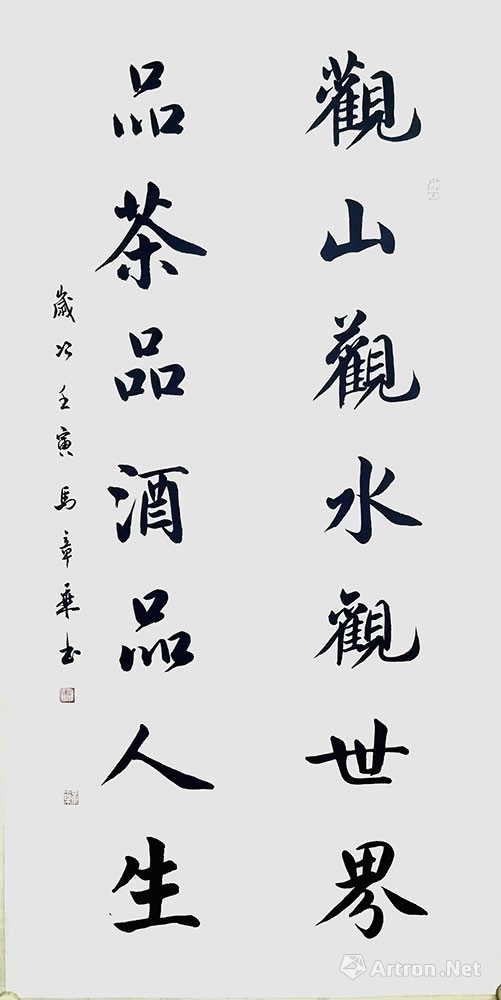 觀山觀水觀世界
品茶品酒品人生
歲次壬寅馬章乘书
Artron.Net